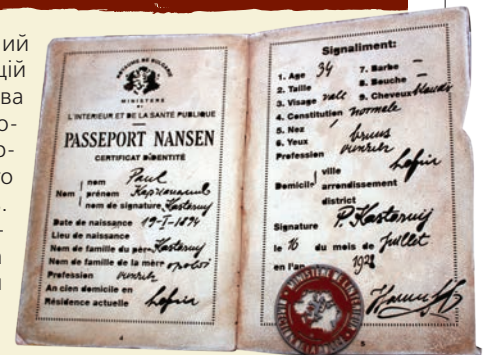 ий
цій
ва
о-
о-
то
.
-
ROYAUME DE BULGARIE
MINISTERE
DE
L'INTERIEUR ET DE LA SANTÉ PUBLIQUE
PASSEPORT NANSEN
CERTIFICAT D'IDENTITÉ
nom Paul
Nom prénom
nom de signature Kasternij
Date de naissance 19-I-1894
Lieu de naissance
Nom de famille du père Kasternij
Nom de famille de la mère
Profession ouvrier
An cien domicile en
Résidence actuelle Lofin
4
Signaliment:
1. Age 34
2. Taille
3. Visage
4. Constitution normale
5. Nez
6. Yeux bruns
7. Barbe —
8. Bouche —
9. Cheveux
Profession ouvrier
ville Lofin
Domicile arrondissement
district
Signature P. Kasternij
le 16 du mois de Juillet
en l'an 1928
5